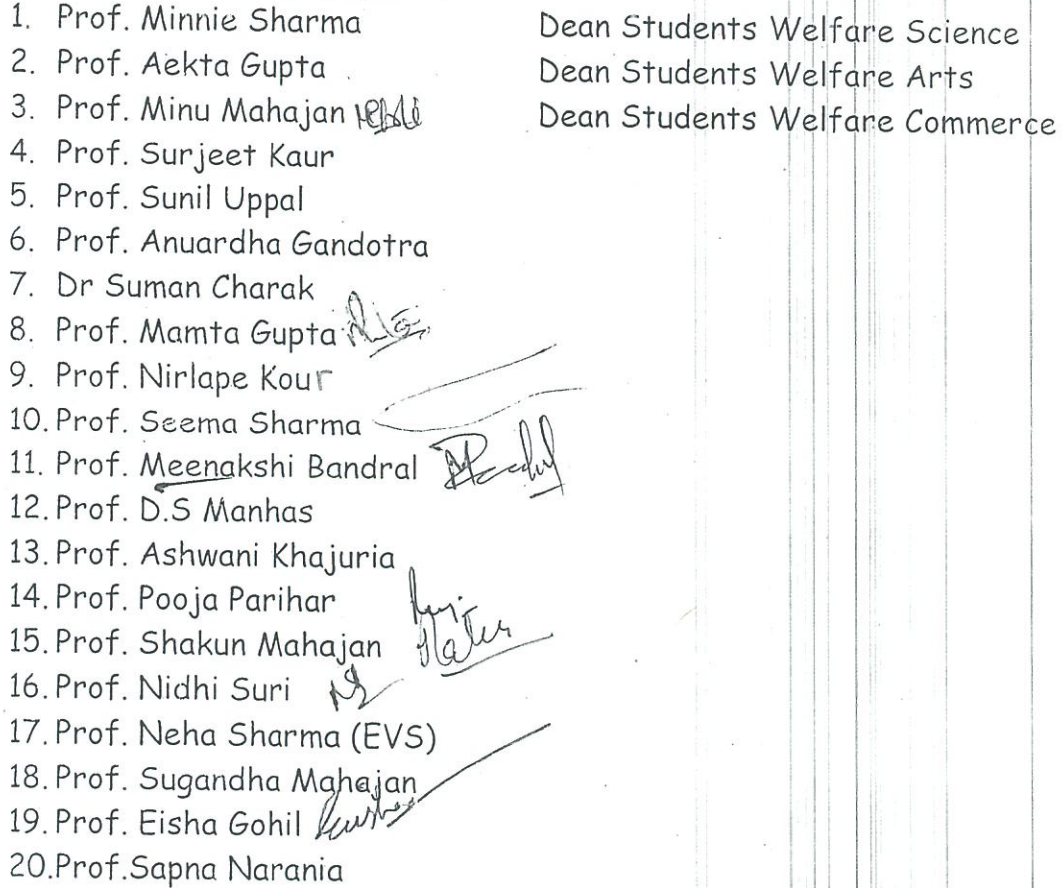 1. Prof. Minnie Sharma Dean Students Welfare Science
2. Prof. Aekta Gupta Dean Students Welfare Arts
3. Prof. Minu Mahajan Dean Students Welfare Commerce
4. Prof. Surjeet Kaur
5. Prof. Sunil Uppal
6. Prof. Anuardha Gandotra
7. Dr Suman Charak
8. Prof. Mamta Gupta
9. Prof. Nirlape Kour
10. Prof. Seema Sharma
11. Prof. Meenakshi Bandral
12. Prof. D.S Manhas
13. Prof. Ashwani Khajuria
14. Prof. Pooja Parihar
15. Prof. Shakun Mahajan
16. Prof. Nidhi Suri
17. Prof. Neha Sharma (EVS)
18. Prof. Sugandha Mahajan
19. Prof. Eisha Gohil
20.Prof.Sapna Narania